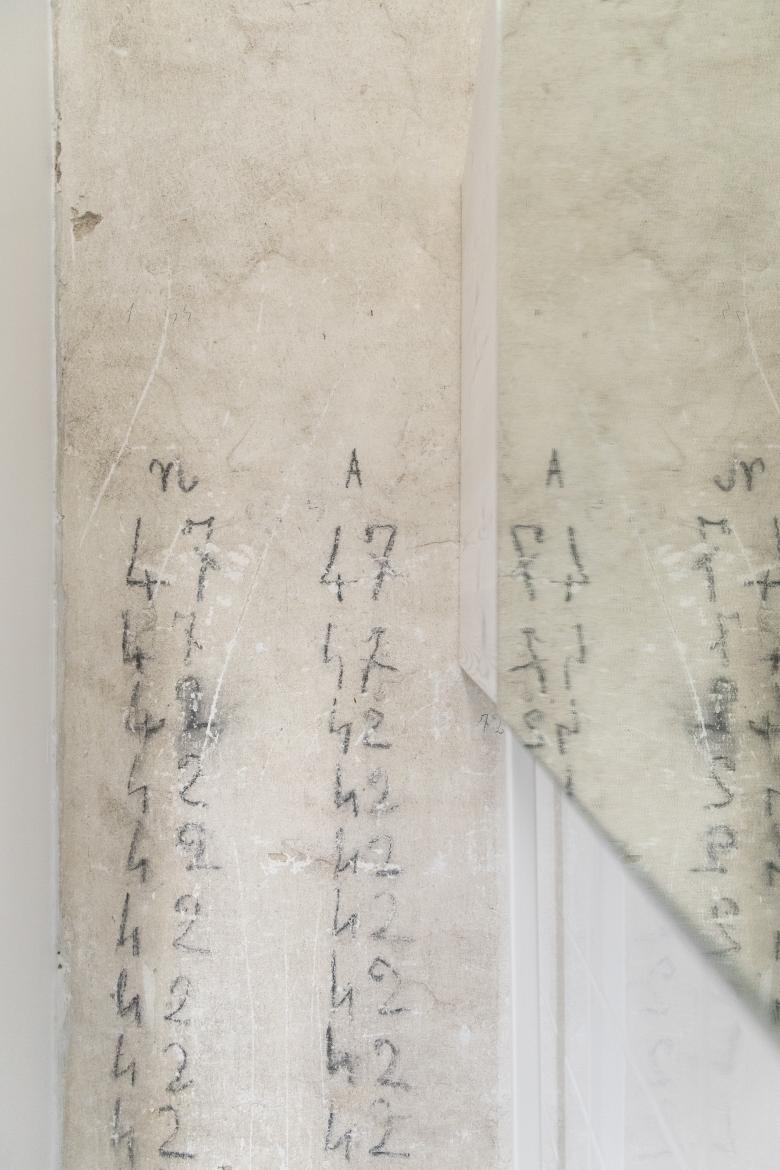 n A
47 47
47 47
42 42 72
42 42
42 42
42 42
42 42
42 42
42 42